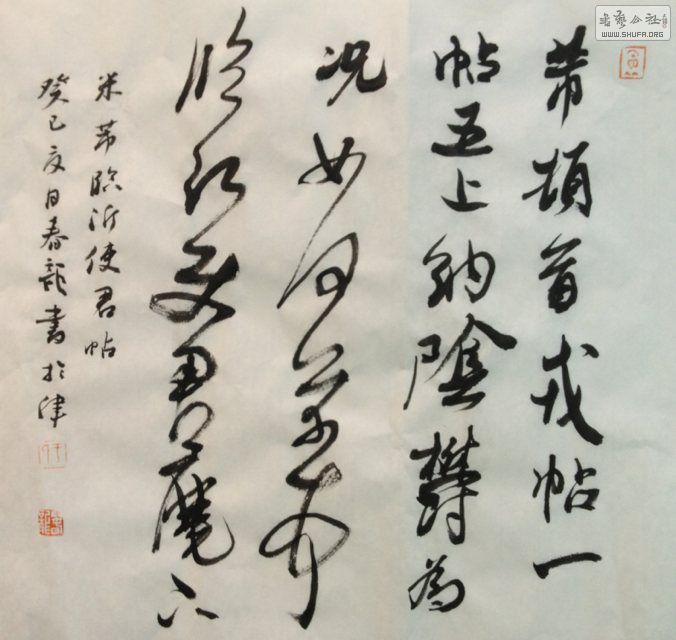 書藝公社
WWW.SHUFA.ORG
芾頓首戎帖一
帖五上納陰鬱為
况如何芾頓首
臨沂使君麾下
米芾臨沂使君帖
癸巳夏日春龍書於津